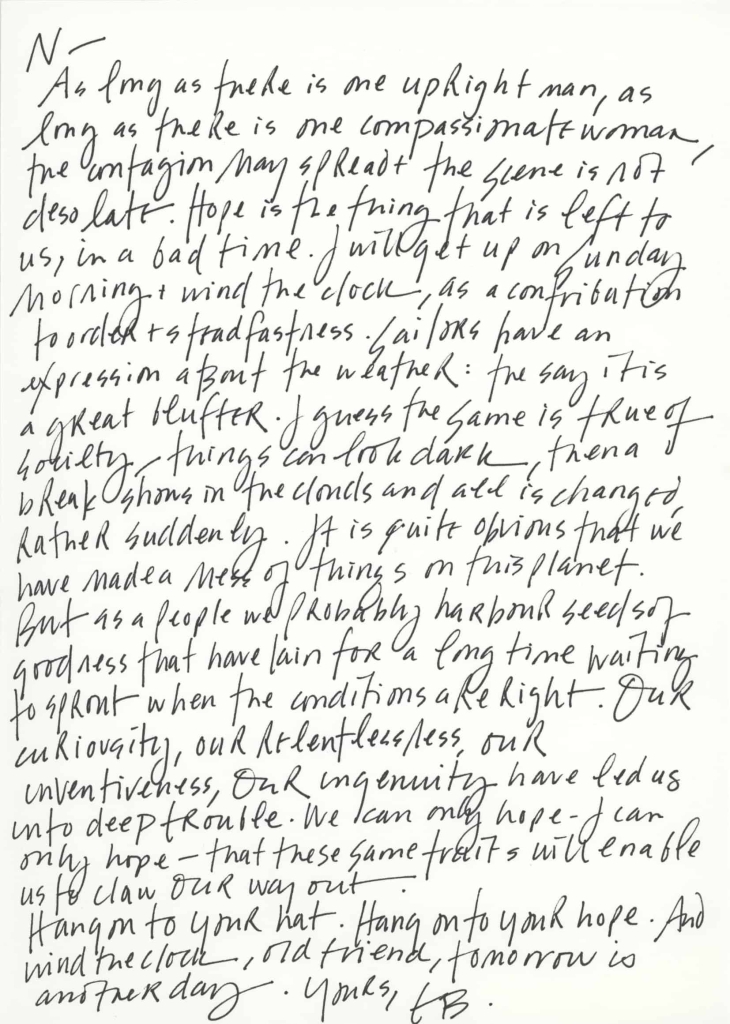 N—
As long as there is one upRight man, as
long as theRe is one compassionate woman,
the contagion may spRead + the scene is not
desolate. Hope is the thing that is left to
us, in a bad time. I will get up on Sunday
Morning + wind the clock, as a contribution
to order + steadfastness. Sailors have an
expression aBout the weather: the say it is
a gReat bluffeR. I guess the same is tRue of
society – things can look dark, then a
bReak shows in the clouds and all is changed,
RatheR suddenly. It is quite obvious that we
have made a mess of things on this planet.
But as a people we pRobably harbouR seeds of
goodness that have lain foR a long time waiting
to spRout when the conditions aRe Right. OuR
cuRiousity, ouR Relentlessness, ouR
inventiveness, OuR ingenuity have led us
into deep tRouble. We can only hope – I can
only hope – that these same traits will enable
us to claw OuR way out.
Hang on to youR hat. Hang on to youR hope. And
wind the clock, old friend, tomorrow is
anotheR day. YouRs, EB.